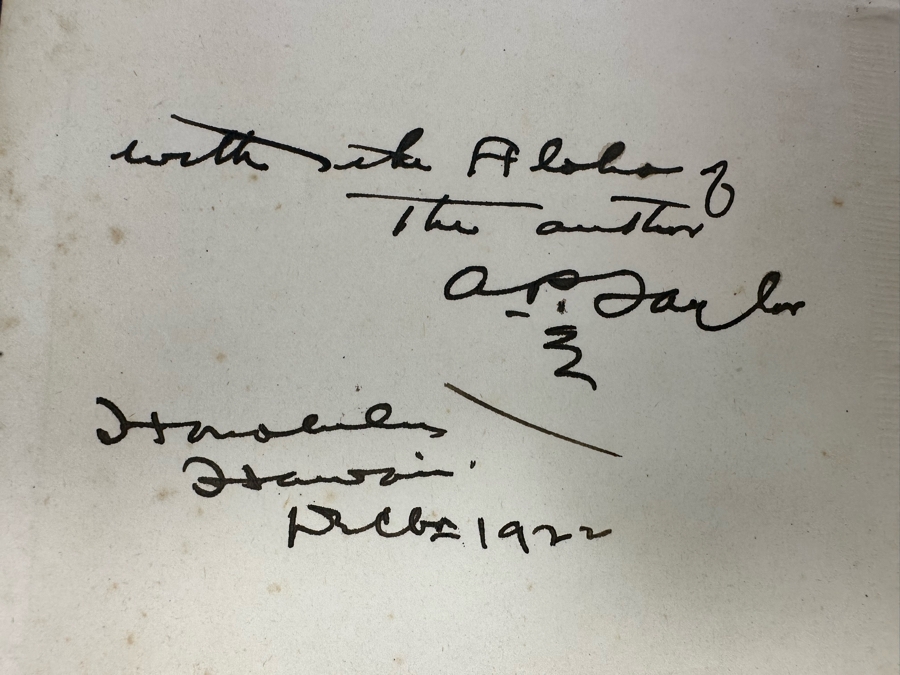 with the Aloha of
The author
A.P. Taylor
Honolulu
Hawaii
Decbr 1922